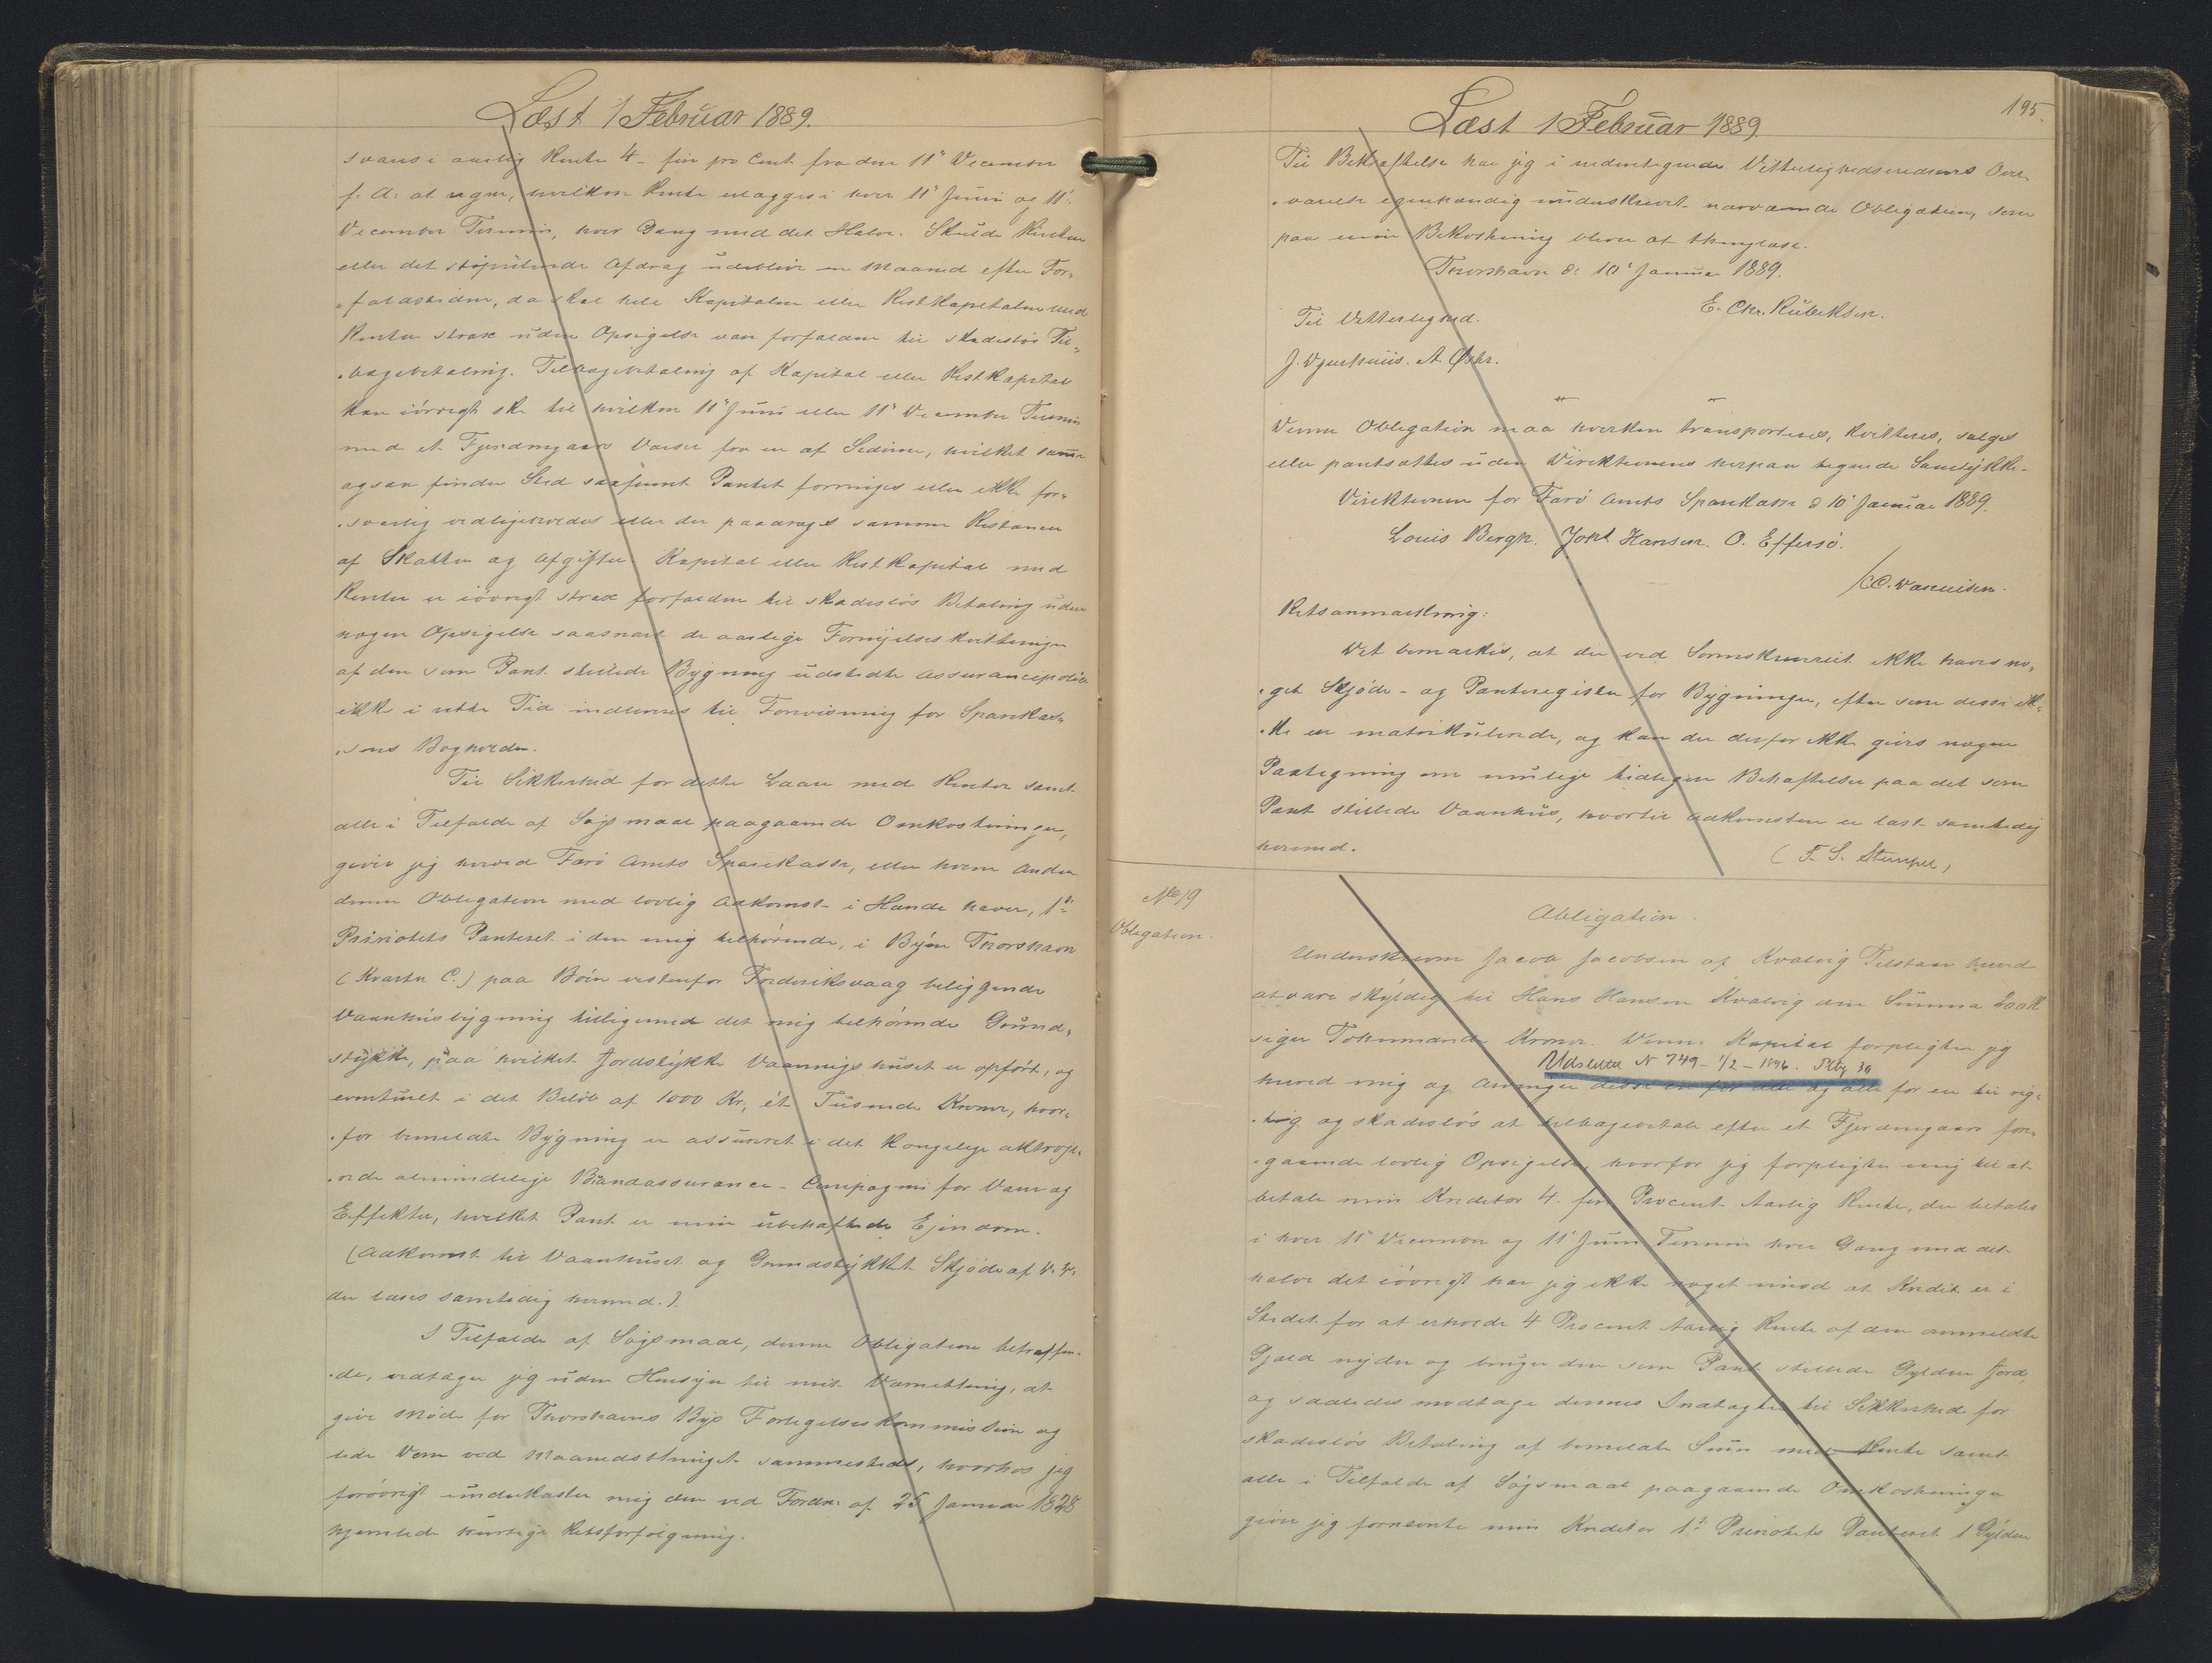 Læst 1 Februar 1889.
svares i aarlig Rente 4 - fire pro Cent fra den 11' December
f. A. at regne, hvilken Rente erlægges i hver 11' Juni og 11'
December Termin, hver Gang med det Halve. Skulde Renten
eller det stipulerede Afdrag udeblive en Maaned efter For-
faldstiden, da skal hele Kapitalen eller Restkapitalen med
Renter strax uden Opsigelse være forfalden til skadesløs Til-
bagebetaling. Tilbagebetaling af Kapital eller Restkapital
kan iövrigt ske til hvilken 11' Juni eller 11' December Termin
med et Fjerdingaars Varsel fra en af Siderne, hvilket samme
ogsaa finder Sted saafremt Pantet forringes eller ikke for-
svarlig vedligeholdes eller der paadrages samme Restancer
af Skatter og Afgifter. Kapital eller Restkapital med
Renter er iövrigt strax forfalden til skadeslös Betaling uden
nogen Opsigelse saasnart de aarlige Fornyelseskvitteringer
af den som Pant stillede Bygning udstedte Assurancepolice
ikke i rette Tid indleveres til Forevisning for Sparekas-
sens Bogholder.
Til Sikkerhed for dette Laan med Renter samt
alle i Tilfælde af Sögsmaal paagaaende Omkostninger,
giver jeg herved Færö Amts Sparekasse, eller hvem anden
denne Obligation med lovlig Adkomst i Hænde haver, 1ste
Prioritets Panteret i den mig tilhörende, i Byen Thorshavn
(Kvarter C.) paa Böin vestenfor Frederiksvaag beliggende
Vaanhusbygning tilligemed det mig tilhörende Grund-
stykke, paa hvilket Jordstykke Vaaningshuset er opfört, og
eventuelt i det Belöb af 1000 Kr, ét Tusende Kroner, hvor-
for bemeldte Bygning er assureret i det Kongelige oktroje-
rede almindelige Brandassurance-Compagni for Vare og
Effekter, hvilket Pant er min ubehæftede Ejendom.
(Adkomst til Vaanhuset og Grundstykket Skjöde af
der læses samtidig hermed.).
I Tilfælde af Sögsmaal, denne Obligation betræffen-
de, vedtager jeg uden Hensyn til mit Værneting, at
give Möde for Thorshavns Bys Forligelseskommission og
lide Dom ved Maanedsthinget sammesteds, hvorhos jeg
forövrigt underkaster mig den ved Fordn: af 25 Januar 1828
hjemlede hurtige Retsforfölgning.
Læst 1 Februar 1889
195.
Til Bekræftelse har jeg i undertegnede Vitterlighedsvidners Over-
værelse egenhændig underskrevet nærværende Obligation, som
paa min Bekostning bliver at thinglæse.
Thorshavn d: 10' Januar 1889.
E. Chr. Rübeksen.
Til Vitterlighed.
J. Djurhuus. A. Öster.
Denne Obligation maa hverken transporteres, kvitteres, sælges
eller pantsættes uden Direktionens herpaa tegnede Samtykke.
Direktionen for Færö Amts Sparekasse d 10' Januar 1889.
Louis Bergh. Joh. Hansen. O. Effersö.
/C. C. Danielsen.
Retsanmærkning:
Det bemærkes, at der ved Sorenskriveriet ikke haves no-
get Skjöde- og Panteregister for Bygninger, efter som disse ik-
ke ere matrikulerede, og kan der derfor ikke gives nogen
Paategning om mulige tidligere Behæftelser paa det som
Pant stillede Vaanhus, hvortil Adkomsten er læst samtidig
hermed.
( F. S. Stempel )
No 19
Obligation.
Obligation.
Underskrevne Jacob Jacobsen af Kvalvig Tilstaar herved
at være skyldig til Hans Hansen Kvalvig den Summa 200 Kr
siger Tohundrede Kroner. Denne Kapital forpligter jeg
Udslettet N 749 - 1/2 - 1896. Mbg 30
herved mig og Arvinger disse en for alle og alle for en til rig-
tig og skadeslös at tilbagebetale efter et Fjerdingaars fore-
gaaende lovlig Opsigelse, hvorfor jeg forpligter mig til at
betale min Kreditor 4. fire Procent Aarlig Rente, der betales
i hver 11' December og 11' Juni Termin hver Gang med det
halve det iövrigt har jeg ikke noget imod at Kreditor i
Stedet for at erholde 4 Procent Aarlig Rente af den ommeldte
Gjæld nyder og bruger den som Pant stillede Gylden Jord,
og saaledes modtage dennes Indtægter til Sikkerhed for
skadeslös Betaling af bemeldte Sum med Rente samt
alle i Tilfælde af Sögsmaal paagaaende Omkostninger
giver jeg fornævnte min Kreditor 1ste Prioritets Panteret 1 Gylden